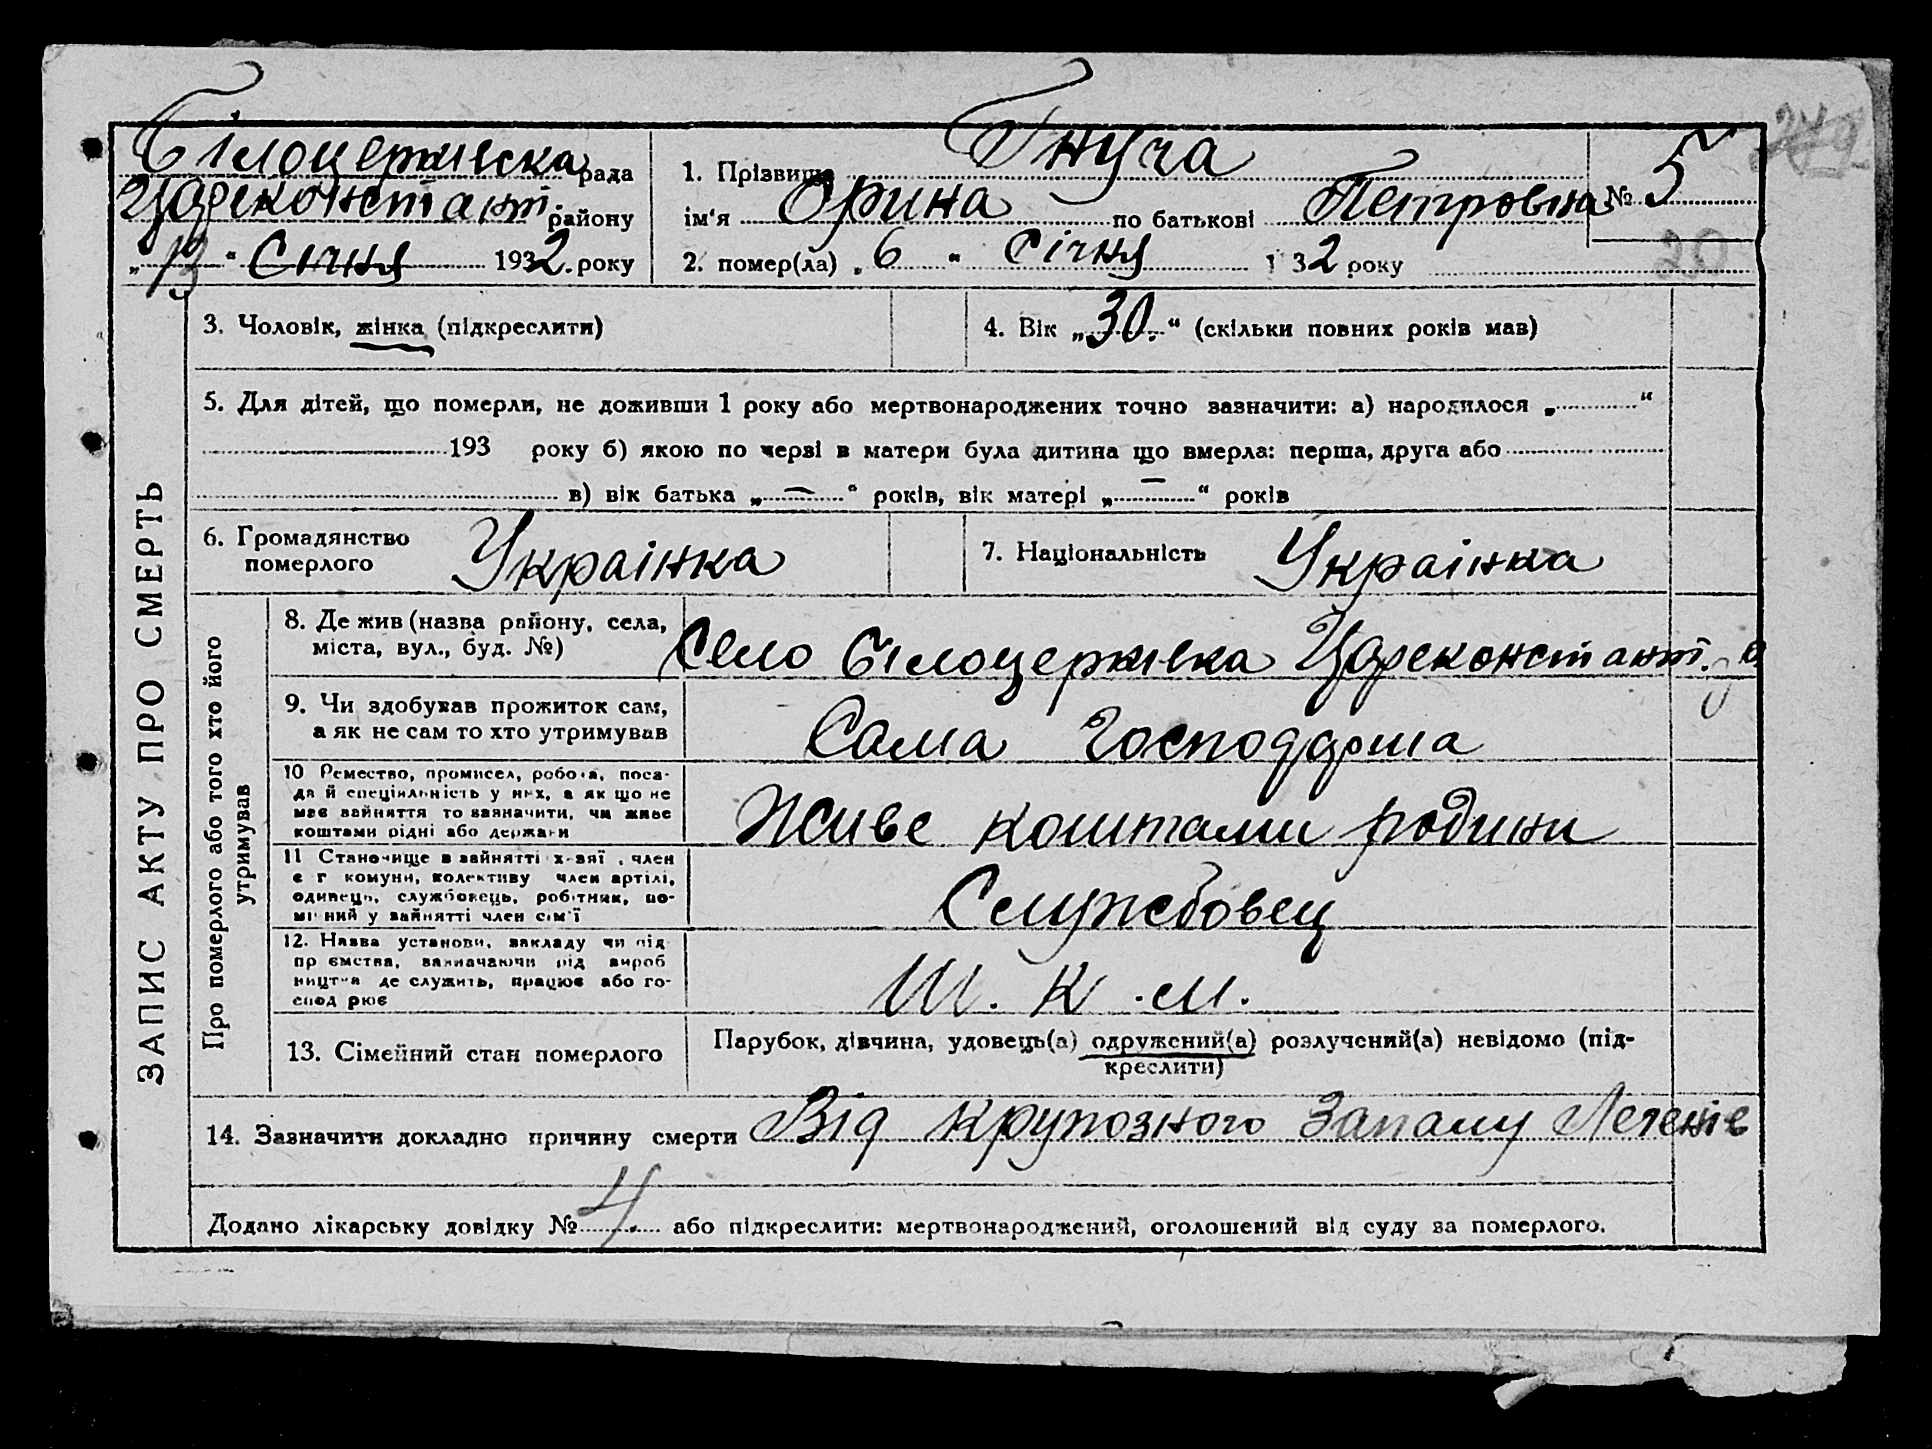 Білоцерківска рада
Цареконстант. району
„13“ Січня 1932. року
1. Прізвище Гнуча
ім'я Орина по батькові Петровна
№ 5
20
2. помер(ла) „6“ Січня 1 32 року
3. Чоловік, жінка (підкреслити)
4. Вік „30.“ (скільки повних років мав)
5. Для дітей, що померли, не доживши 1 року або мертвонароджених точно зазначити: а) народилося „ “
193 року б) якою по черзі в матери була дитина що вмерла: перша, друга або
в) вік батька „—“ років, вік матері „—“ років
6. Громадянство
померлого
Украінка
7. Національність Украінка
ЗАПИС АКТУ ПРО СМЕРТЬ
Про померлого або того хто його
утримував
8. Де жив (назва району, села,
міста, вул., буд. №)
Село Білоцерківка Цареконстант.
9. Чи здобував прожиток сам,
а як не сам то хто утримував
Сама Господарша
10 Ремество, промисел, робота, поса-
да й спеціяльність у них, а як що не
має зайняття то зазначити, чи живе
коштами рідні або держави
Живе коштами родини
11 Становище в зайнятті х-зяї , член
с г комуни, колективу член артілі,
одинець, службовець, робітник, по-
мічний у зайнятті член сім'ї
Службовец
12. Назва установи, закладу чи під
пр ємства, зазначаючи рід вироб
ництва де служить, працює або го-
спод рює
Ш. К. М.
13. Сімейний стан померлого
Парубок, дівчина, удовець(а) одружений(а) розлучений(а) невідомо (під-
креслити)
14. Зазначити докладно причину смерти Від крупозного Запалу Легенів
Додано лікарську довідку № 4 або підкреслити: мертвонароджений, оголошений від суду за померлого.